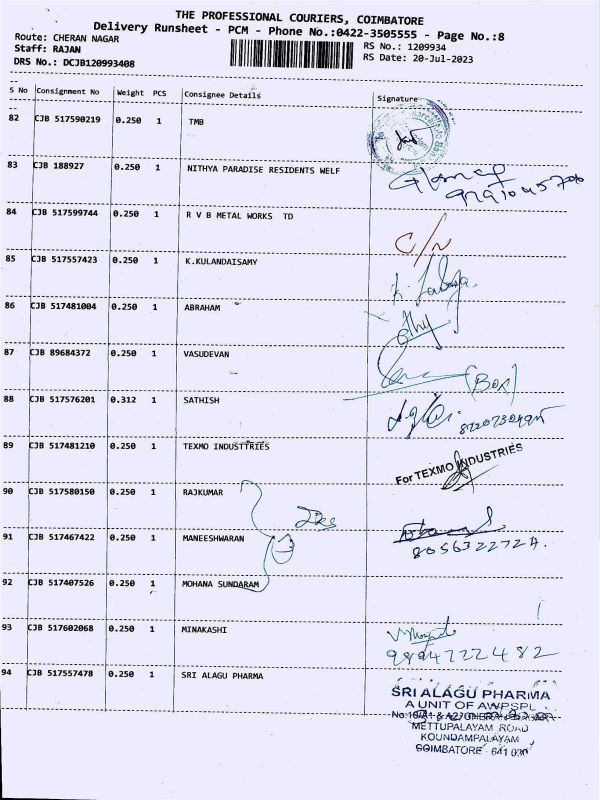 THE PROFESSIONAL COURIERS, COIMBATORE
Delivery Runsheet - PCM - Phone No.:0422-3505555 - Page No.:8
Route: CHERAN NAGAR
RS No.: 1209934
Staff: RAJAN
RS Date: 20-Jul-2023
DRS No.: DCJB120993408
S No Consignment No Weight PCS Consignee Details Signature
82 CJB 517590219 0.250 1 TMB
83 CJB 188927 0.250 1 NITHYA PARADISE RESIDENTS WELF
84 CJB 517599744 0.250 1 R V B METAL WORKS TD
C/N
85 CJB 517557423 0.250 1 K.KULANDAISAMY
86 CJB 517481004 0.250 1 ABRAHAM
87 CJB 89684372 0.250 1 VASUDEVAN
(Box)
88 CJB 517576201 0.312 1 SATHISH
89 CJB 517481210 0.250 1 TEXMO INDUSTTRIES
For TEXMO INDUSTRIES
90 CJB 517580150 0.250 1 RAJKUMAR
91 CJB 517467422 0.250 1 MANEESHWARAN
8056322724.
92 CJB 517407526 0.250 1 MOHANA SUNDARAM
93 CJB 517602068 0.250 1 MINAKASHI
9894722482
94 CJB 517557478 0.250 1 SRI ALAGU PHARMA
SRI ALAGU PHARMA
A UNIT OF AWPSPL
METTUPALAYAM ROAD
KOUNDAMPALAYAM
COIMBATORE - 641 030